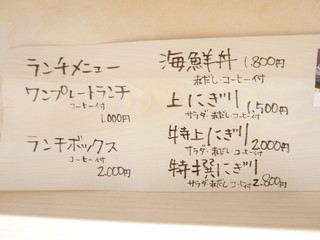 ランチメニュー
ワンプレートランチ
コーヒー付
1.000円
ランチボックス
コーヒー付
2.000円
海鮮丼 1.800円
赤だし・コーヒー付
上にぎり 1.500円
サラダ・赤だし・コーヒー付
特上にぎり 2.000円
サラダ・赤だし・コーヒー付
特撰にぎり 2.800円
サラダ・赤だし・コーヒー付